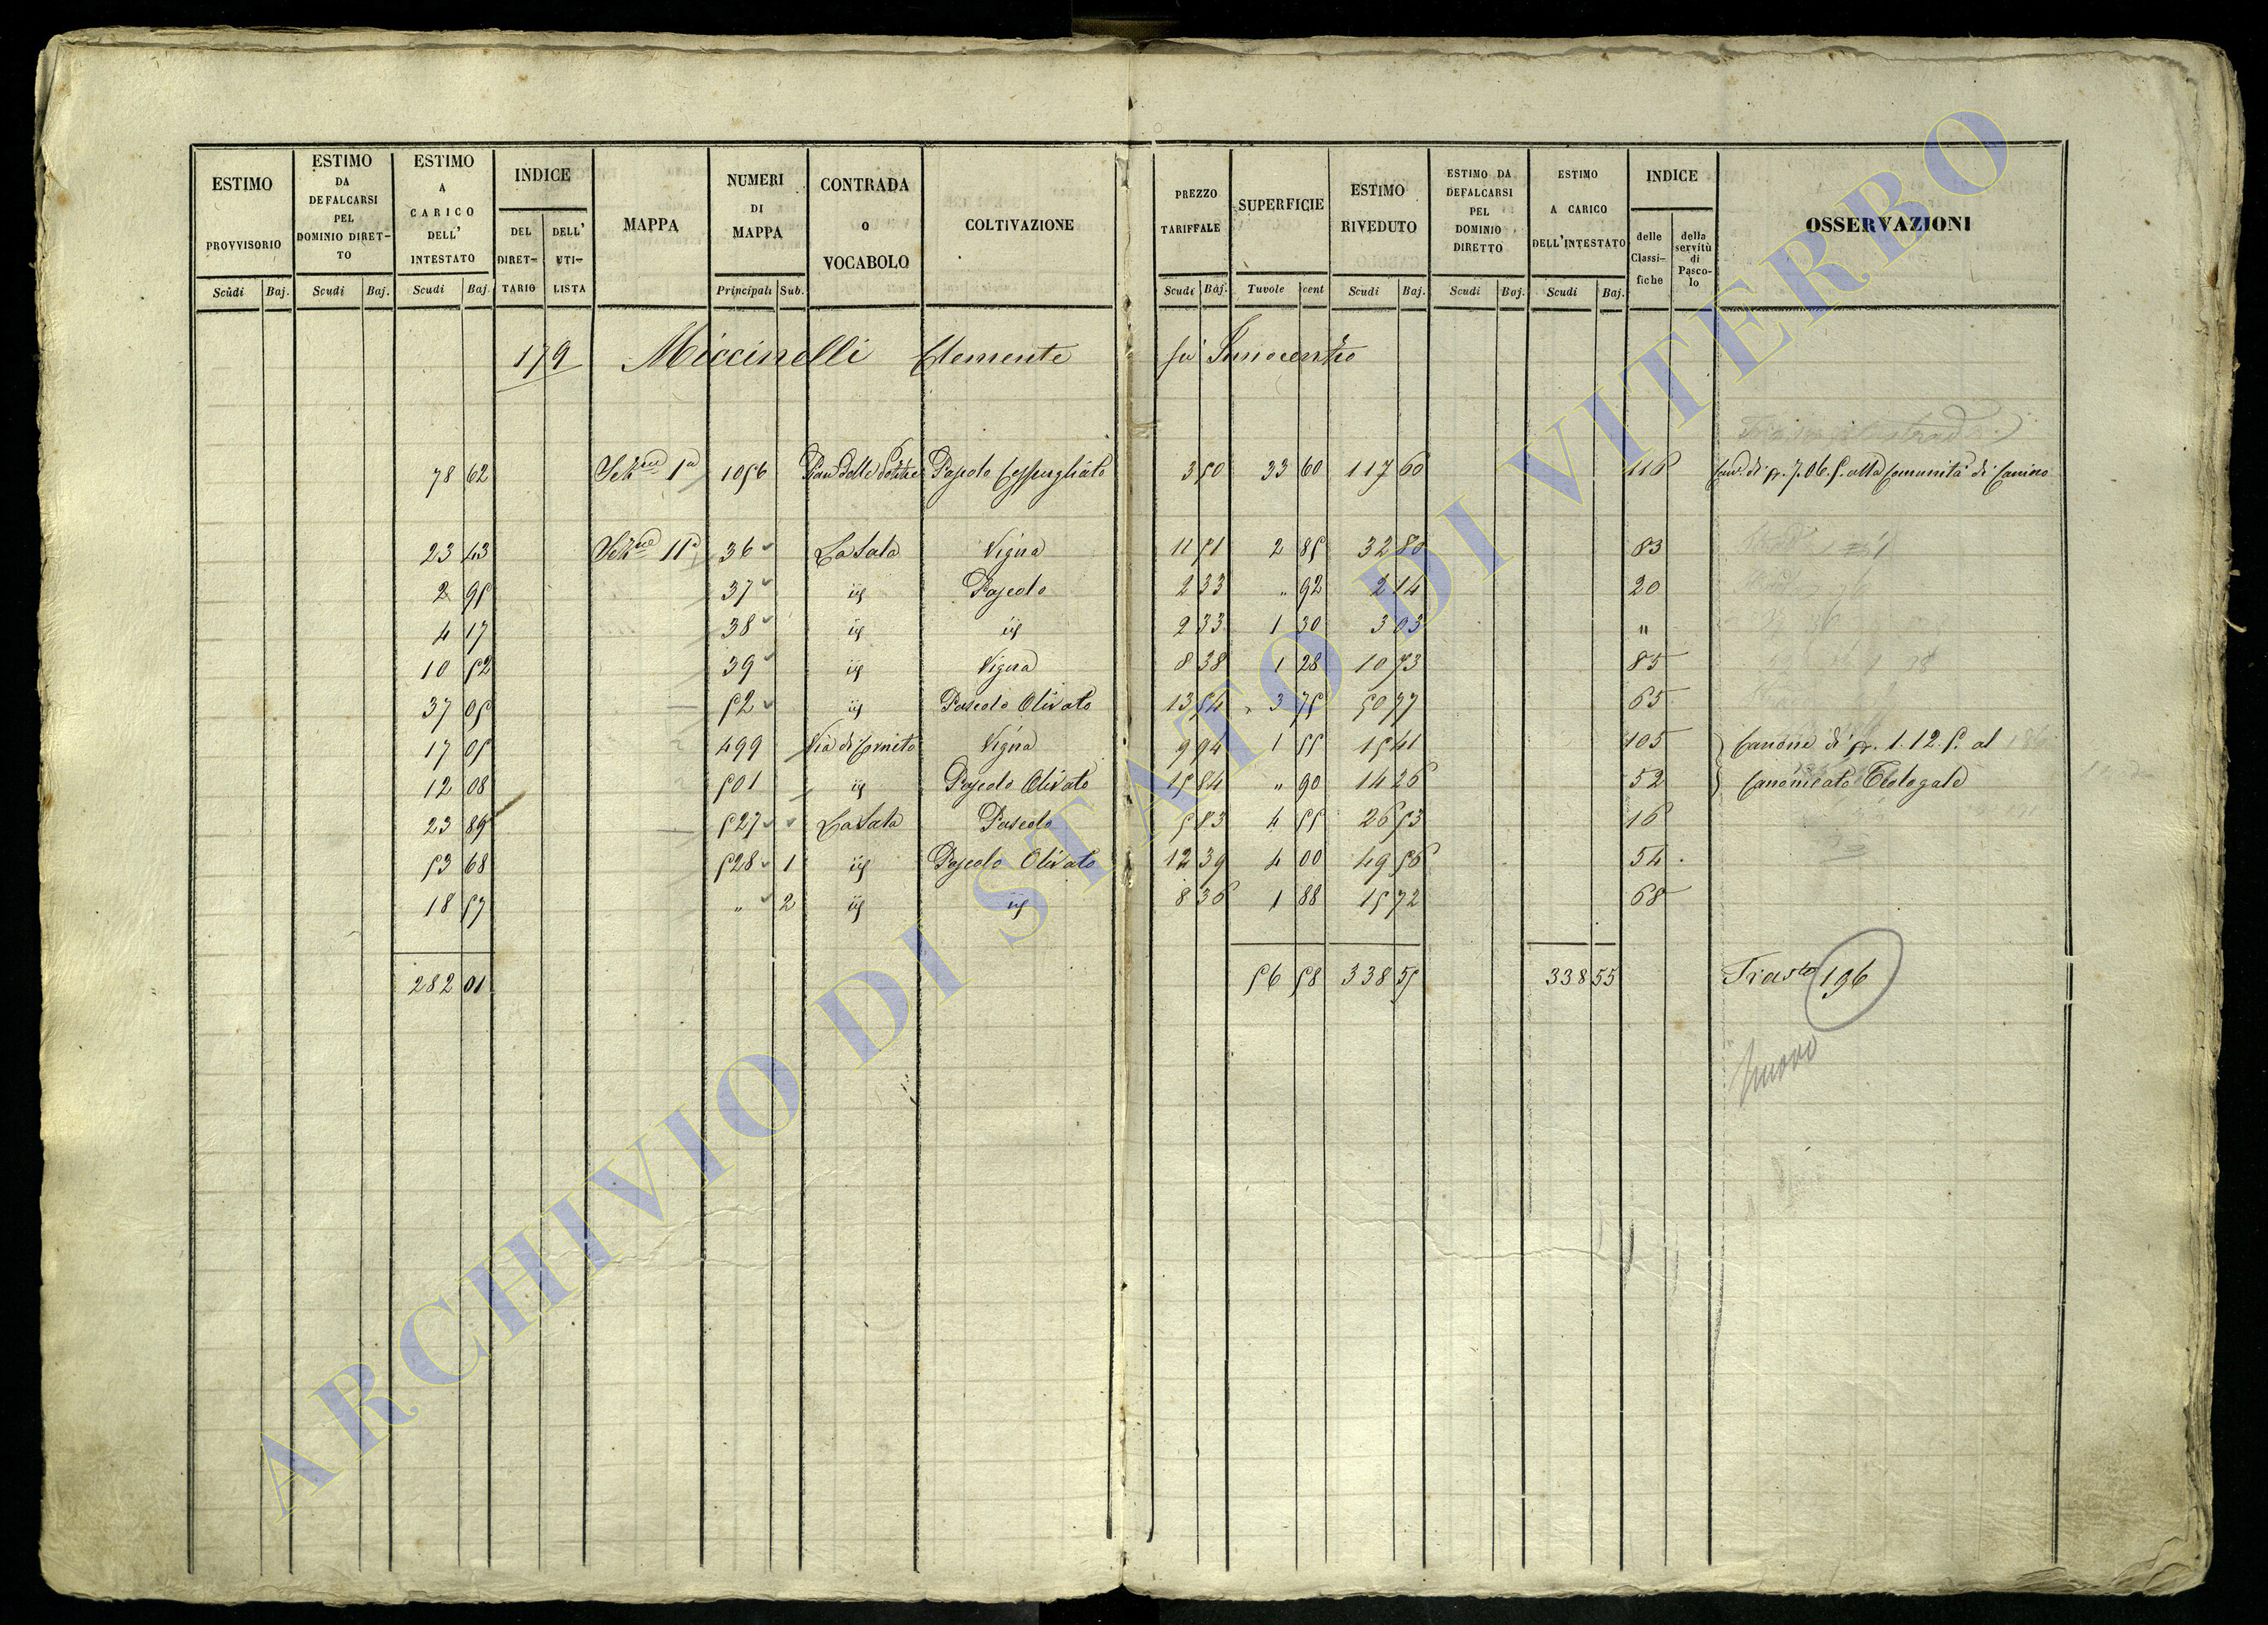 ESTIMO PROVVISORIO Scudi Baj.
ESTIMO DA DEFALCARSI PEL DOMINIO DIRETTO Scudi Baj.
ESTIMO A CARICO DELL' INTESTATO Scudi Baj.
INDICE DEL DIRETTARIO DELL' UTILISTA
MAPPA
NUMERI DI MAPPA Principali Sub.
CONTRADA o VOCABOLO
COLTIVAZIONE
PREZZO TARIFFALE Scudi Baj.
SUPERFICIE Tavole cent
ESTIMO RIVEDUTO Scudi Baj.
ESTIMO DA DEFALCARSI PEL DOMINIO DIRETTO Scudi Baj.
ESTIMO A CARICO DELL'INTESTATO Scudi Baj.
INDICE delle Classifiche della servitù di Pascolo
OSSERVAZIONI
179 Miccinelli Clemente fu Innocenzo
78 62 Sez.ne 1a 1056 Pian delle Pascolo Cespugliato 3 50 33 60 117 60 116 Can. di sc. 7.06.5. alla Comunità di Canino
23 43 Sez.ne 11a 36 La Sala Vigna 11 51 2 85 32 80 83
2 95 37 id Pascolo 2 33 " 92 2 14 20
4 17 38 id id 2 33 1 30 3 03 "
10 52 39 id Vigna 8 38 1 28 10 73 85
37 05 52 id Pascolo Olivato 13 54 3 75 50 77 65
17 05 499 Via di Corneto Vigna 9 94 1 55 15 41 105 Canone di sc. 1.12.5. al
12 08 501 id Pascolo Olivato 15 84 " 90 14 26 52 Canonicato Teologale
23 89 527 La Sala Pascolo 5 83 4 55 26 53 16
53 68 528 1 id Pascolo Olivato 12 39 4 00 49 56 54
18 57 " 2 id id 8 36 1 88 15 72 68
282 01 56 58 338 55 338 55 Trasto 196
Nuovo
ARCHIVIO DI STATO DI VITERBO